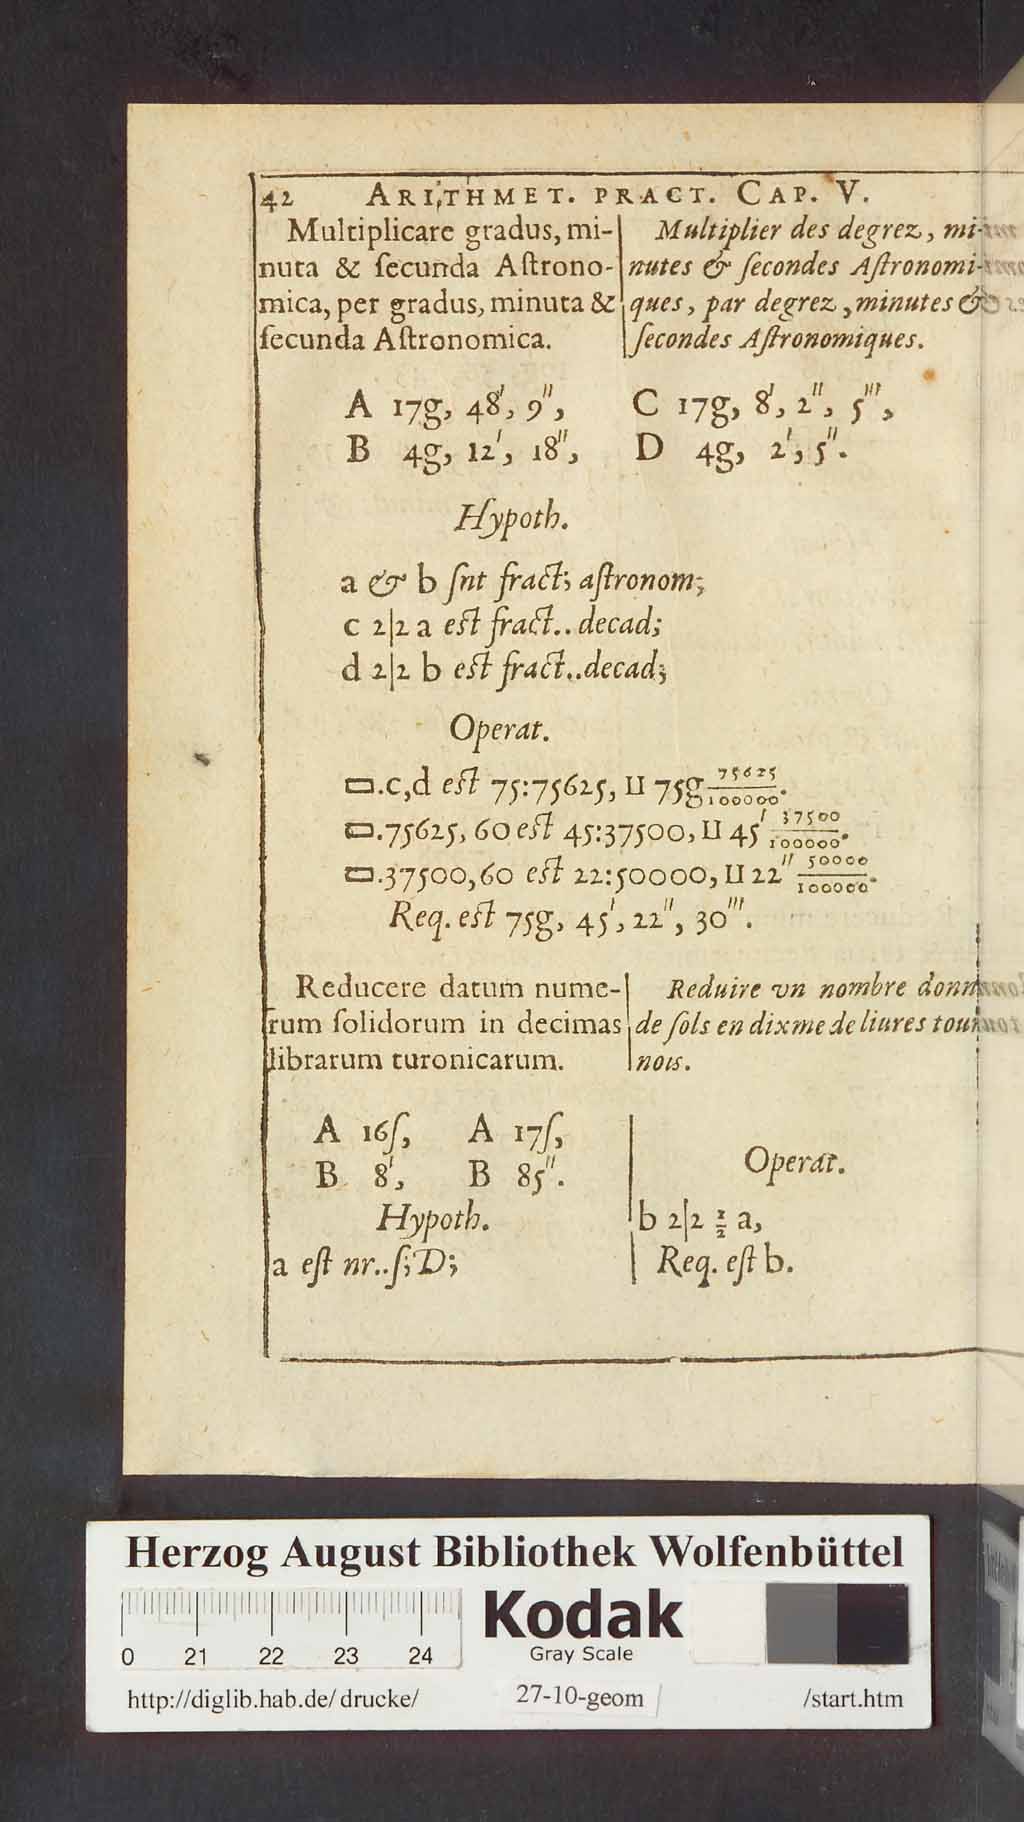 42 ARITHMET. PRACT. CAP. V.
Multiplicare gradus, mi-
nuta & ſecunda Aſtrono-
mica, per gradus, minuta &
ſecunda Aſtronomica.
Multiplier des degrez, mi-
nutes & ſecondes Aſtronomi-
ques, par degrez, minutes &
ſecondes Aſtronomiques.
A 17g, 48′, 9″, C 17g, 8′, 2″, 5‴,
B 4g, 12′, 18″, D 4g, 2′, 5″.
Hypoth.
a & b ſnt fract; aſtronom;
c 2|2 a eſt fract.. decad;
d 2|2 b eſt fract..decad;
Operat.
▭.c,d eſt 75:75625, II 75g 75625/100000.
▭.75625, 60 eſt 45:37500, II 45′ 37500/100000.
▭.37500,60 eſt 22:50000, II 22″ 50000/100000.
Req. eſt 75g, 45′, 22″, 30‴.
Reducere datum nume-
rum ſolidorum in decimas
librarum turonicarum.
Reduire vn nombre donn
de ſols en dixme de liures tour
nois.
A 16ſ, A 17ſ,
B 8′, B 85″.
Hypoth.
a eſt nr..ſ; D;
Operat.
b 2|2 1/2 a,
Req. eſt b.
Herzog August Bibliothek Wolfenbüttel
0 21 22 23 24
Kodak
Gray Scale
http://diglib.hab.de/drucke/ 27-10-geom /start.htm